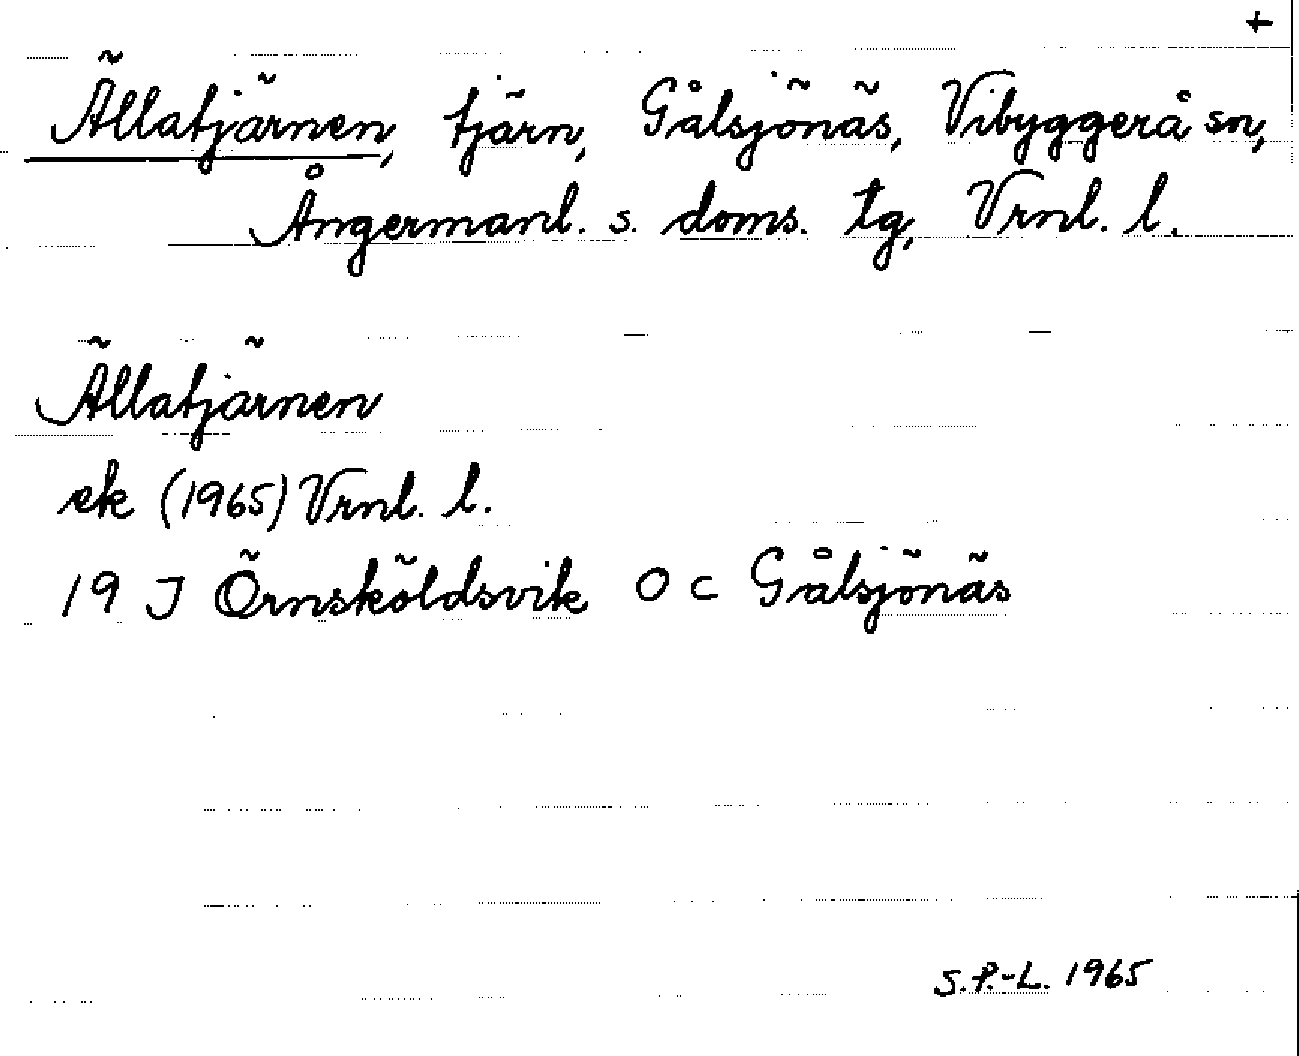 +
Ällatjärnen, tjärn, Gålsjönäs, Vibyggerå sn,
Ångermanl. s. doms. tg, Vrnl. l.
Ällatjärnen
ek (1965) Vrnl. l.
19 J Örnsköldsvik O c Gålsjönäs
S.P.-L. 1965